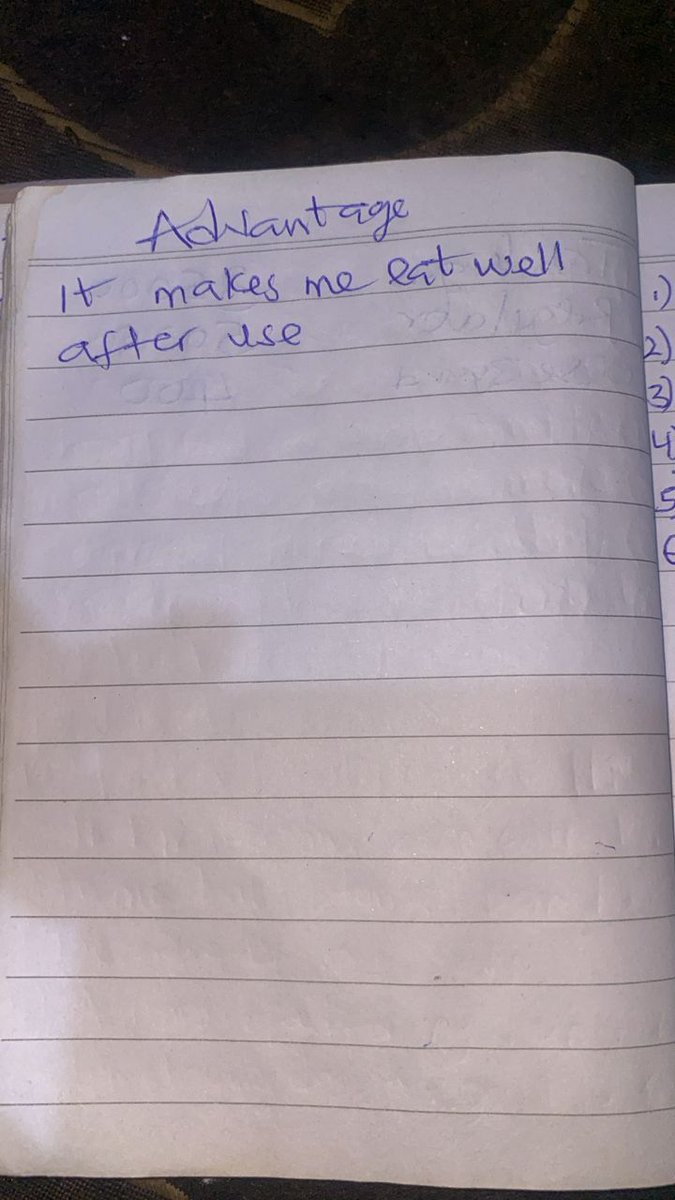 Advantage
It makes me eat well
after use
1)
2)
3)
4
5
6